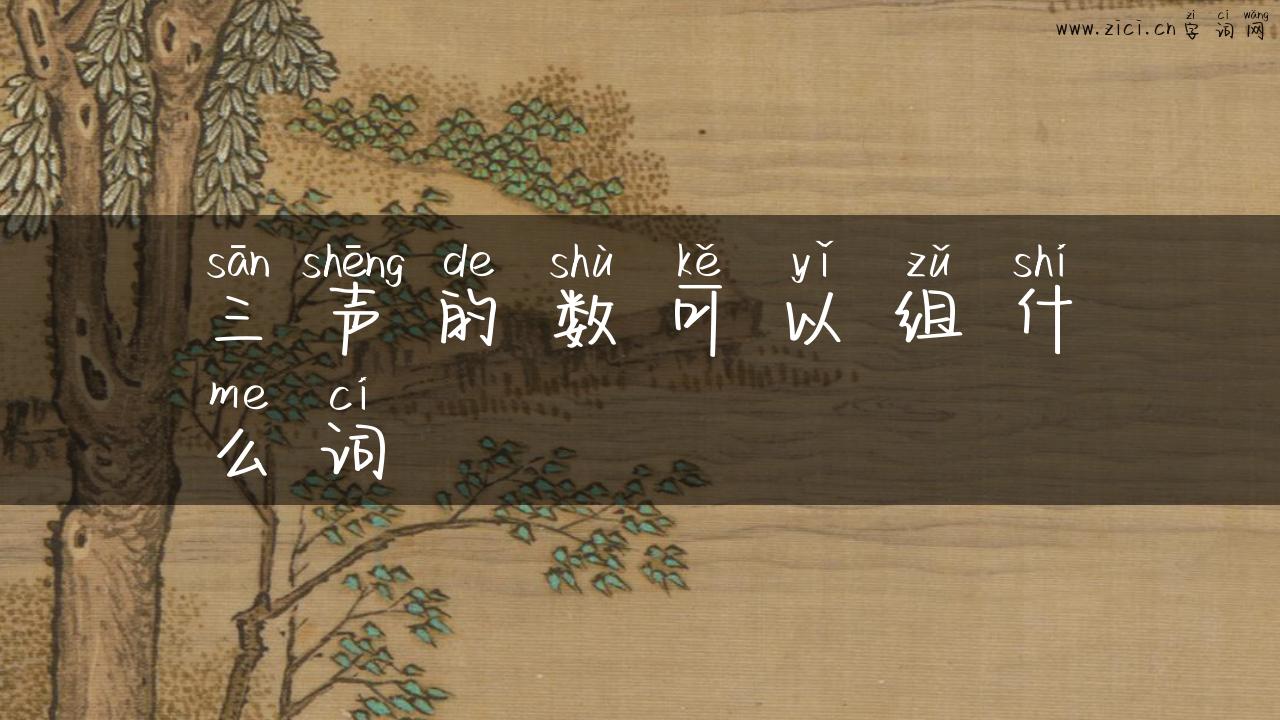 zì cí wǎng
www.zici.cn 字词网
sān shēng de shù kě yǐ zǔ shí
三声的数可以组什
me cí
么词